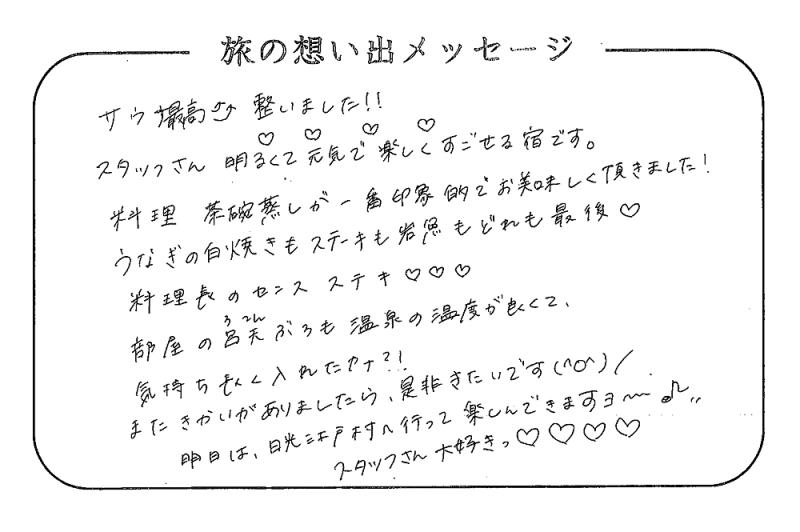 旅の想い出メッセージ
サウ最高⤴ 整いました!!
♡ ♡ ♡ ♡
スタッフさん 明るくて元気で楽しくすごせる宿です。
料理 茶碗蒸しが一番印象的でお美味しく頂きました!
うなぎの白焼きもステーキも岩魚もどれも最後♡
料理長のセンス ステキ♡♡♡
ろてん
部屋の呂天ぶろも温泉の温度が良くて、
気持ち良く入れたカナ?!
またきかいがありましたら、是非きたいです(^o^)/
明日は、日光江戸村へ行って楽しんできますヨ〜〜♪"
スタッフさん大好きっ♡♡♡♡